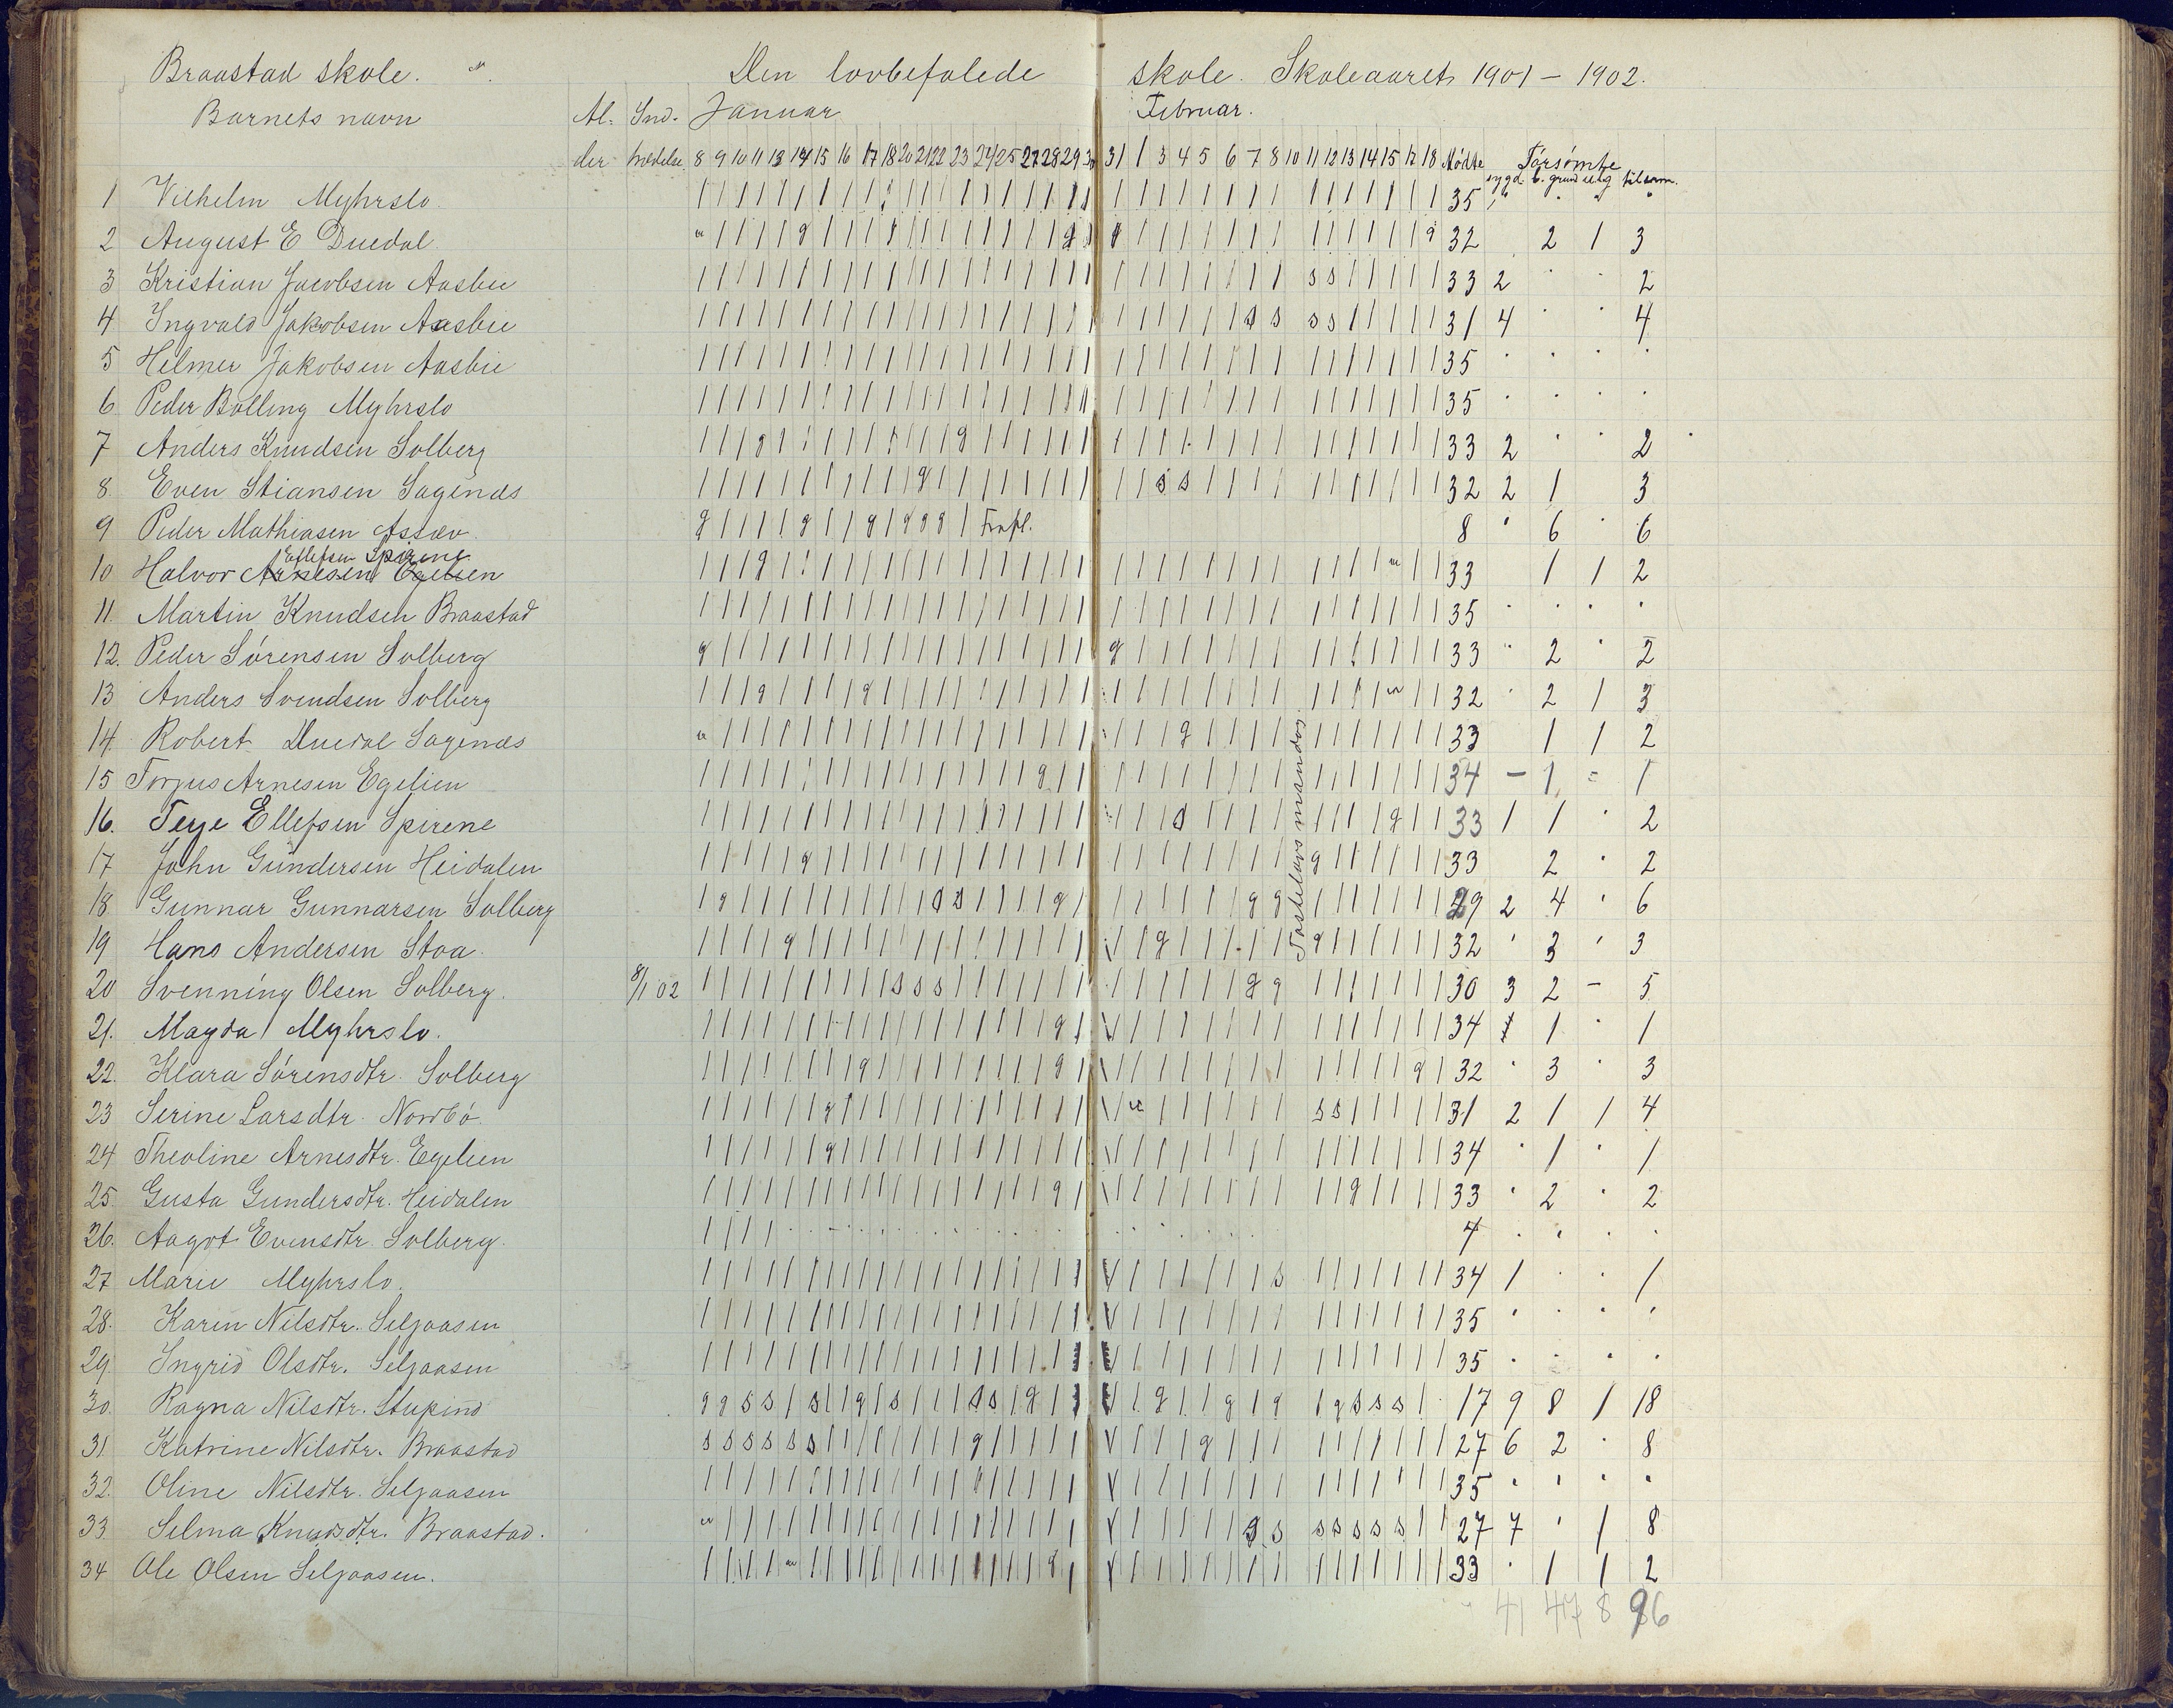 Braastad skole. Den lovbefalede skole. Skoleaaret 1901 – 1902.
Barnets navn Al- Ind- Januar Februar.
der trædelse 8 9 10 11 13 14 15 16 17 18 20 21 22 23 24 25 27 28 29 30 31 1 3 4 5 6 7 8 10 11 12 13 14 15 17 18 Mødte Forsømte
sygd. g. grund ulig tilsam.
1 Vilhelm Myhrslo. 35
2 August E Duedal 32 2 1 3
3 Kristian Jacobsen Aasbie s s 33 2 2
4 Ingvald Jakobsen Aasbie s s s s 31 4 4
5 Helmer Jakobsen Aasbie 35
6 Peder Bolling Myhrslo 35
7 Anders Knudsen Solberg 33 2 2
8. Even Stiansen Sagenes s s 32 2 1 3
9 Peder Mathiasen Assæv. Frafl. 8 6 6
Ellefsen Spirene
10 Halvor Arnesen Egelien 33 1 1 2
11. Martin Knudsen Braastad 35
12. Peder Sørensen Solberg 33 2 2
13 Anders Svendsen Solberg 32 2 1 3
14. Robert Duedal Sagenes 33 1 1 2
15 Torjus Arnesen Egelien 34 – 1 1
16. Terje Ellefsen Spirene 33 1 1 2
17 John Gundersen Heidalen 33 2 2
18 Gunnar Gunnarsen Solberg 29 2 4 6
19 Hans Andersen Stoa. 32 3 3
20 Svenning Olsen Solberg. 8/1 02 s s s 30 3 2 – 5
21. Magda Myhrslo. 34 1 1
22. Klara Sørensdtr. Solberg 32 3 3
23 Serine Larsdtr. Nordbø. s s 31 2 1 1 4
24 Theoline Arnesdtr. Egelien 34 1 1
25. Gusta Gundersdtr. Heidalen 33 2 2
26. Aagot Evensdtr. Solberg. 4
27 Marie Myhrslo. s 34 1 1
28. Karen Nilsdtr. Seljaasen 35
29. Ingrid Olsdtr. Seljaasen 35
30. Ragna Nilsdtr. Stupind 17 9 8 1 18
31. Katrine Nilsdtr. Braastad s s s s s s 27 6 2 8
32. Oline Nilsdtr. Seljaasen 35
33 Selma Knudsdtr. Braastad. s s s s s s s 27 7 1 8
34 Ole Olsen Seljaasen. 33 1 1 2
41 47 8 96
Fastelavns mandag